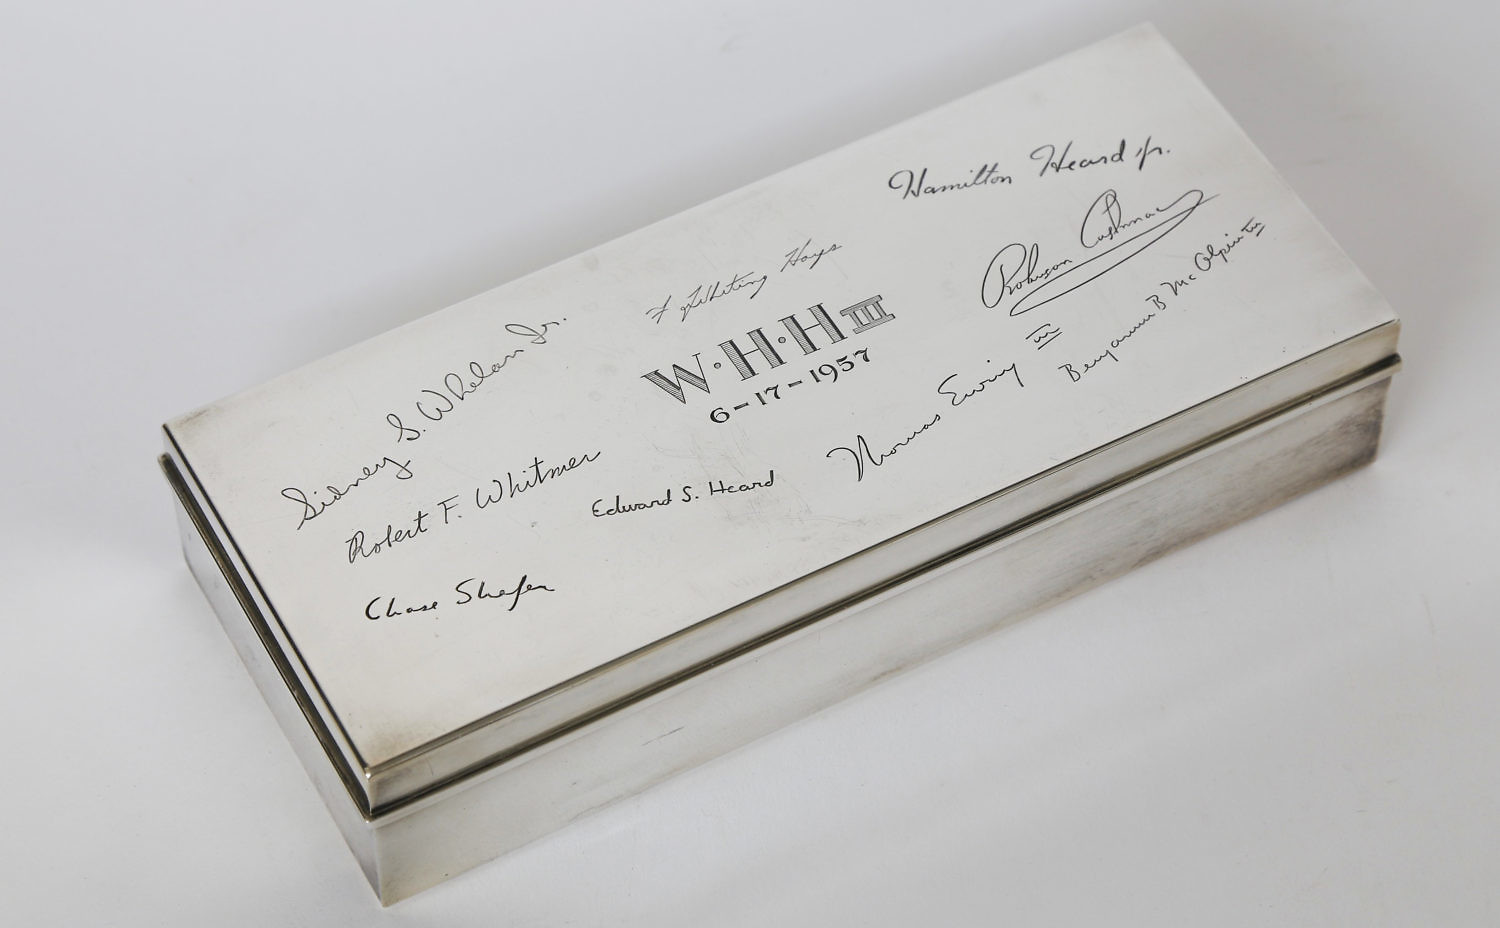 Hamilton Heard Jr.
F Whiting Hays
Robinson
Sidney S. Whelan Jr.
W·H·H III
6-17-1957
Benjamin B McAlpin III
Thomas Ewing III
Robert F. Whitmer
Edward S. Heard
Chase Shafer